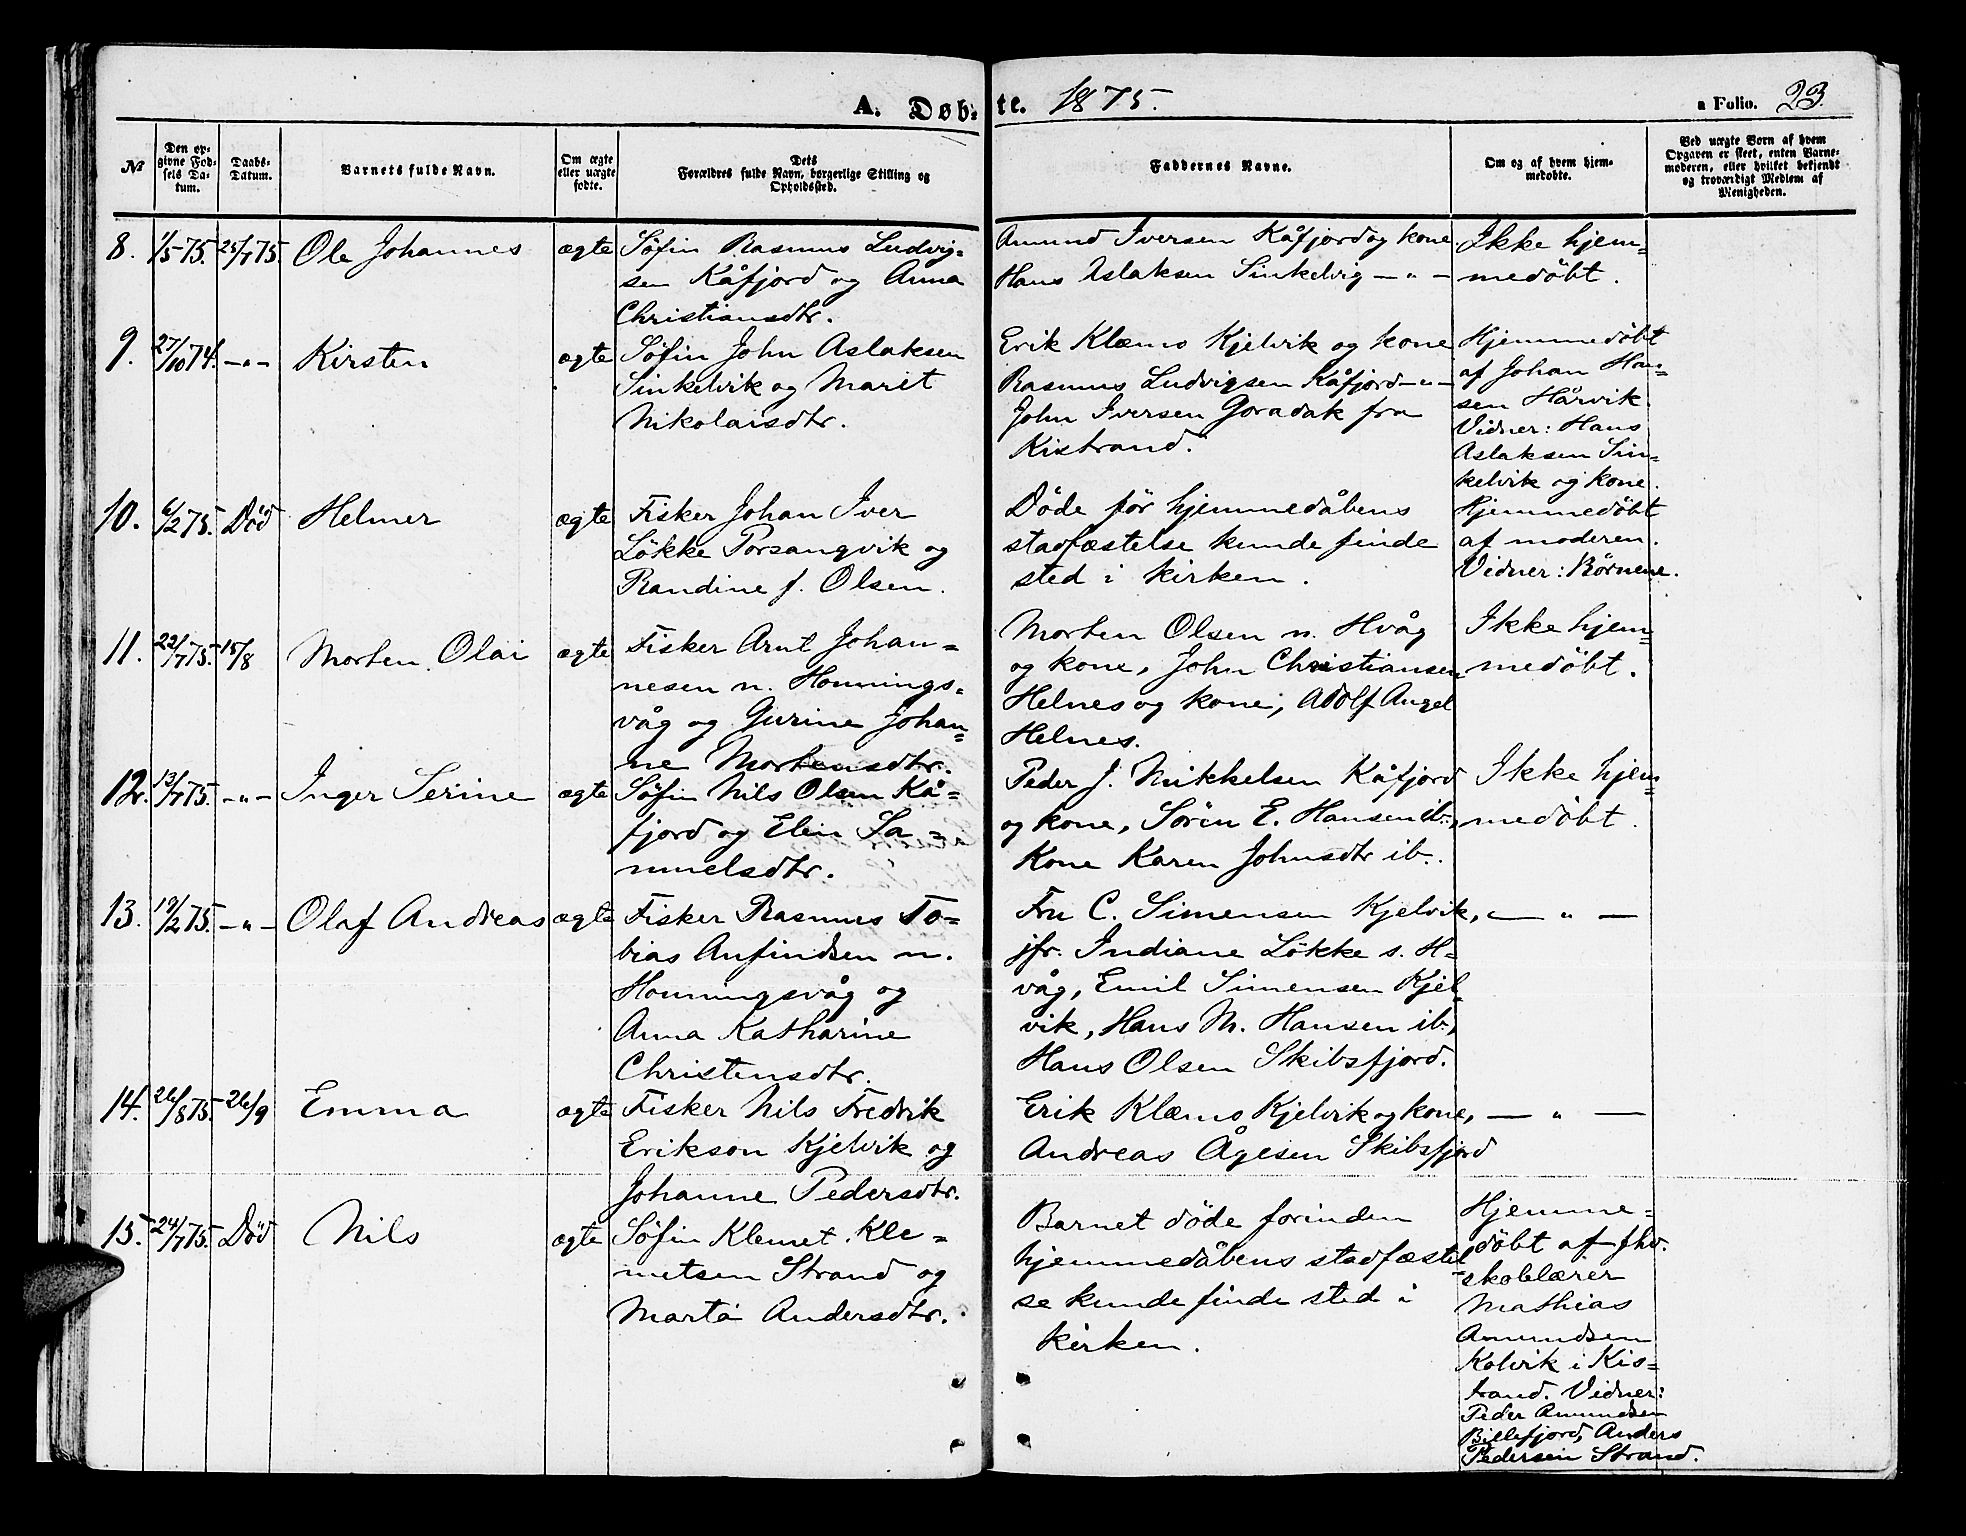 A. Døb- te. 1875. a Folio. 23.
№
Den op-
givne Fød-
sels Da-
tum.
Daabs-
Datum.
Barnets fulde Navn.
Om ægte
eller uægte
fødte.
Dets
Forældres fulde Navn, borgerlige Stilling og
Opholdssted.
Faddernes Navne.
Om og af hvem hjem-
medøbte.
Ved uægte Børn af hvem
Opgaven er skeet, enten Barne-
moderen, eller hvilket bekjendt
og troværdigt Medlem af
Menigheden.
8. 1/5 75. 25/7 75 Ole Johannes ægte Søfin Rasmus Ludvig-
sen Kåfjord og Anna
Christiansdtr.
Amund Iversen Kåfjord og kone.
Hans Aslaksen Sinkelvig — " —
Ikke hjem-
medöbt.
9. 27/10 74. — " — Kirsten ægte Søfin John Aslaksen
Sinkelvik og Marit
Nikolaisdtr.
Erik Klæmo Kjelvik og kone
Rasmus Ludvigsen Kåfjord — " —
John Iversen Goradak fra
Kistrand.
Hjemmedöbt
af Johan Han-
sen Hårvik
Vidner: Hans
Aslaksen Sin-
kelvik og kone.
10. 6/2 75. Död Helmer ægte Fisker Johan Iver
Lökke Porsangvik og
Randine f. Olsen.
Döde för hjemmedåbens
stadfæstelse kunde finde
sted i kirken.
Hjemmedöbt
af moderen.
Vidner: Börnene.
11. 22/7 75. 15/8 Morten Olai ægte Fisker Arnt Johan-
nesen n. Honnings-
våg og Gurine Johan-
ne Mortensdtr.
Morten Olsen n. Hvåg
og kone, John Christiansen
Helnes og kone, Adolf Angel
Helnes.
Ikke hjem-
medöbt.
12. 13/7 75. — " — Inger Serine ægte Søfin Nils Olsen Kå-
fjord og Elen Sa-
muelsdtr.
Peder J. Mikkelsen Kåfjord
og kone, Sören E. Hansen ib.,
Kone Karen Johnsdtr ib.
Ikke hjem-
medöbt.
13. 19/2 75. — " — Olaf Andreas ægte Fisker Rasmus To-
bias Anfindsen n.
Honningsvåg og
Anna Katharine
Christensdtr.
Fru C. Simensen Kjelvik,
jfr. Indiane Lökke s. H-
våg, Emil Simensen Kjel-
vik, Hans M. Hansen ib,
Hans Olsen Skibsfjord.
— " —
14. 26/8 75. 26/9 Emma ægte Fisker Nils Fredrik
Erikson Kjelvik og
Johanne Pedersdtr.
Erik Klæmo Kjelvik og kone,
Andreas Ågesen Skibsfjord
— " —
15. 24/7 75. Död Nils ægte Søfin Klemet Kle-
metsen Strand og
Marta Andersdtr.
Barnet döde forinden
hjemmedåbens stadfæstel-
se kunde finde sted i
kirken.
Hjemme-
döbt af fhv.
skolelærer
Mathias
Amundsen
Kolvik i Kis-
trand. Vidner:
Peder Amundsen
Billefjord, Anders
Pedersen Strand.